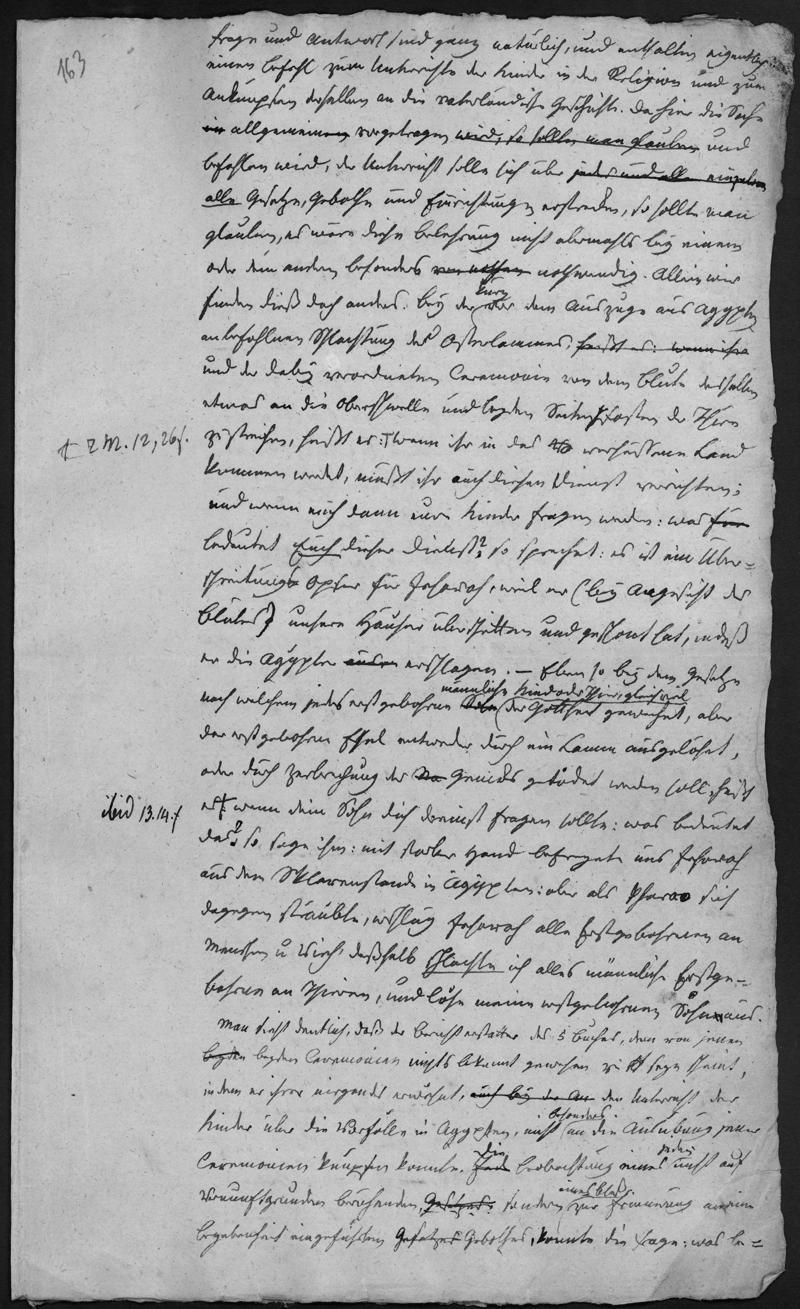 163
Frage und Antwort sind ganz natürlich, und enthalten eigentlich
einen Befehl zum Unterrichte der Kinder in der Religion und zum
Anknüpfen derselben an die vaterländische Geschichte. Da hier die Sache
im allgemeinen vorgetragen wird, so sollte man glauben und
befohlen wird, der Unterricht solle sich über jedes und alle einzelnen
alle Gesetze, Gebothe und Einrichtungen erstrecken, so sollte man
glauben, es wäre diese Belehrung nicht abermahls bey einem
oder dem andern besonders von nöthen nothwendig. Allein wir
finden dieß doch anders. Bey der kurz vor dem Auszuge aus Agypten
anbefohlnen Schlachtung des Osterlammes, heißt es: wenn ihr
und der dabey verordneten Ceremonie von dem Blute desselben
etwas an die Oberschwelle und beyden Seitenpfosten der Thüre
zu streichen, heißt es: wenn ihr in das verheissene Land
2 M. 12, 26f.
kommen werdet, müßt ihr auch diesen Dienst verrichten;
und wenn euch dann eure Kinder fragen werden: was für
bedeutet Euch dieser Dienst? so sprechet: es ist ein Über=
schreitungs Opfer für Jehovah, weil er (bey Angesicht des
Blutes) unsere Häuser überschritten und geschont hat, indeß
er die Agypter erschlagen. – Eben so bey dem Gesetze
nach welchem jedes erstgebohrne männliche Kind oder Thier, gleichviel der Gottheit geweihet, aber
der erstgebohrne Esel entweder durch ein Lamm ausgelöset,
oder durch Zerbrechung des Genicks getödet werden soll, heißt
ibid 13.14.f
es: wenn dein Sohn dich dereinst fragen sollte: was bedeutet
das? so sage ihm: mit starker Hand befreyete uns Jehovah
aus dem Sklavenstande in Ägypten: aber als Pharao sich
dagegen sträubte, erschlug Jehovah alle Erstgebohrnen an
Menschen u Vieh, deßhalb schlachte ich alles männliche Erstge=
bohrne an Thieren, und löse meine erstgebohrnen Söhne aus.
Man sieht deutlich, daß der Berichterstatter des 5 Buches, dem von jenen
beyden beyden Ceremonien nichts bekannt gewesen zu seyn scheint,
indem er ihrer nirgends erwähnt, auch bey der An den Unterricht der
Kinder über die Vorfälle in Agypten, nicht besonders an die Ausübung jener
Ceremonien knüpfen konnte. Die Beobachtung eines jeden nicht auf
Vernunftgründen beruhenden, Gesetzes: sondern eines blos zur Erinnerung an eine
Begebenheit eingeführten Gesetzes Gebothes, konnte die Frage: was be=